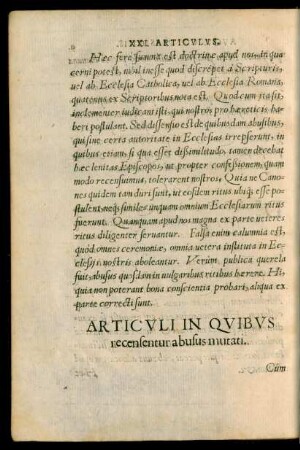 XXI. ARTICVLVS.
Hæc ferè summa est doctrinæ apud nos, in qua
cerni potest, nihil inesse quod discrepet à Scripturis,
uel ab Ecclesia Catholica, uel ab Ecclesia Romana,
quatenus ex Scriptoribus nota est. Quod cum ita sit,
inclementer iudicant isti, qui nostros pro hæreticis ha-
beri postulant. Sed dissensio est de quibusdam abusibus,
qui sine certa autoritate in Ecclesias irrepserunt, in
quibus etiam, si qua esset dissimilitudo, tamen decebat
hæc lenitas Episcopos, ut propter confessionem, quam
modo recensuimus, tolerarent nostros, Quia ne Cano-
nes quidem tam duri sunt, ut eosdem ritus ubiq; esse po-
stulent, neq; similes unquam omnium Ecclesiarum ritus
fuerunt. Quanquam apud nos magna ex parte ueteres
ritus diligenter seruantur. Falsa enim calumnia est,
quòd omnes ceremoniæ, omnia uetera instituta in Ec-
clesijs nostris aboleantur. Verùm, publica querela
fuit, abusus quosdam in uulgaribus ritibus hærere. Hi,
quia non poterant bona conscientia probari, aliqua ex
parte correcti sunt.
ARTICVLI IN QVIBVS
recensentur abusus mutati.
Cùm